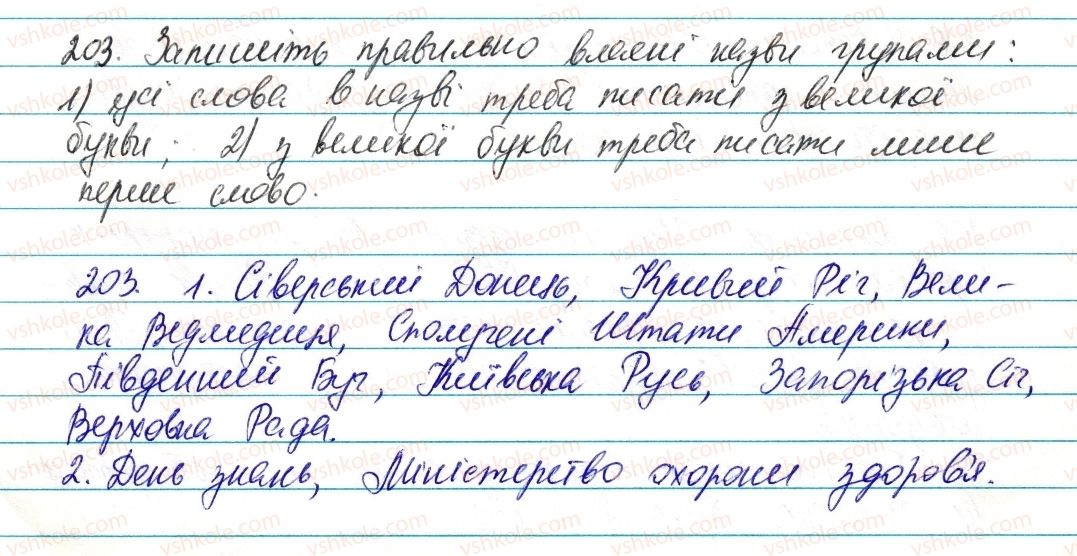 203. Запишіть правильно власні назви групами:
1) усі слова в назві треба писати з великої
букви; 2) з великої букви треба писати лише
перше слово.
203. 1. Сіверський Донець, Кривий Ріг, Вели-
ка Ведмедиця, Сполучені Штати Америки,
Південний Буг, Київська Русь, Запорізька Січ,
Верховна Рада.
2. День знань, Міністерство охорони здоров'я.